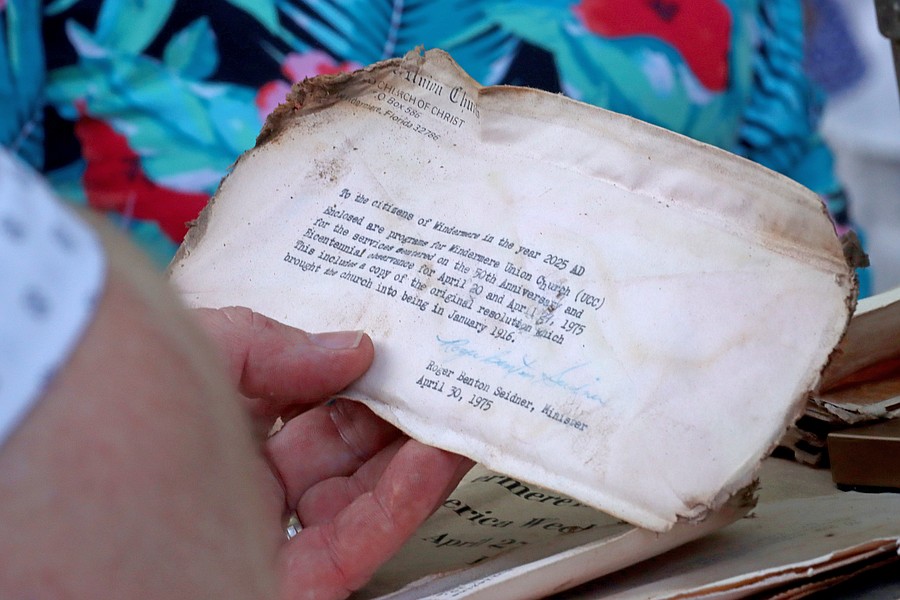 CHURCH OF CHRIST
P.O. Box 586
Windermere, Florida 32786
To the citizens of Windermere in the year 2025 AD
Enclosed are programs for Windermere Union Church (UCC)
for the services on the 50th Anniversary and
Bicentennial observance for April 20 and April 27, 1975
This includes a copy of the original resolution which
brought the church into being in January 1916.
Roger Benton Seidner
Roger Benton Seidner, Minister
April 30, 1975
erica Week
April 2